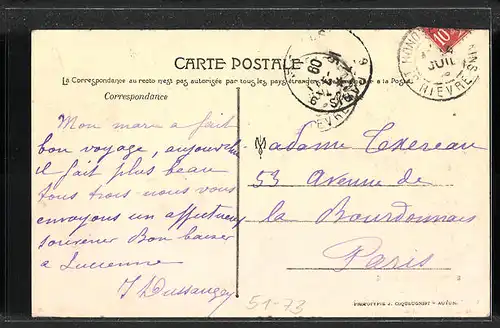 CARTE POSTALE
La Correspondance au recto n'est pas autorisée par tous les pays étrangers à la Poste
Correspondance
Mon mari a fait
bon voyage, aujourd'hui
il fait plus beau
tous trois nous vous
envoyons un affectueux
souvenir Bon baiser
à Lucienne
Madame
53 Avenue de
la Bourdonnais
Paris
51-73
PHOTOTYPIE J. COQUEUGNIOT - AUTUN
10
JUIL
NIÈVRE